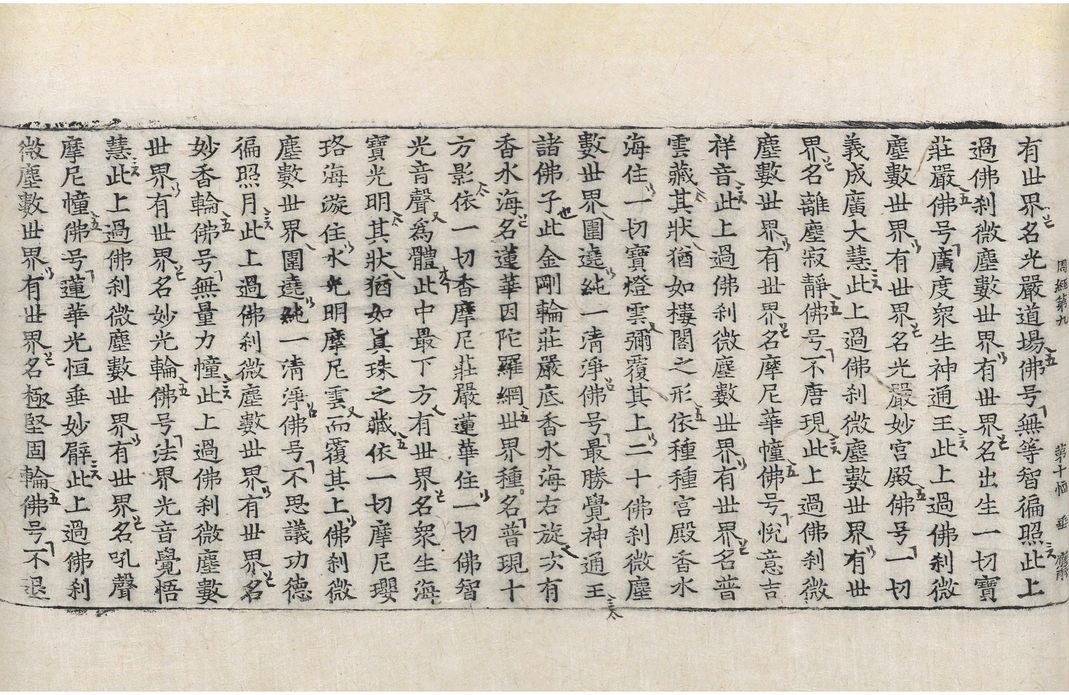 有世界名光嚴道場佛号無等智徧照此上
過佛刹微塵數世界有世界名出生一切寶
莊嚴佛号廣度衆生神通王此上過佛刹微
塵數世界有世界名光嚴妙宮殿佛号一切
義成廣大慧此上過佛刹微塵數世界有世
界名離塵寂靜佛号不唐現此上過佛刹微
塵數世界有世界名摩尼華幢佛号悅意吉
祥音此上過佛刹微塵數世界有世界名普
雲藏其狀猶如樓閣之形依種種宮殿香水
海住一切寶燈雲彌覆其上二十佛刹微塵
數世界圍遶純一清淨佛号最勝覺神通王
諸佛子此金剛輪莊嚴底香水海右旋次有
香水海名蓮華因陀羅網世界種名普現十
方影依一切香摩尼莊嚴蓮華住一切佛智
光音聲爲體此中最下方有世界名衆生海
寶光明其狀猶如真珠之藏依一切摩尼瓔
珞海漩住水光明摩尼雲而覆其上佛刹微
塵數世界圍遶純一清淨佛号不思議功德
徧照月此上過佛刹微塵數世界有世界名
妙香輪佛号無量力幢此上過佛刹微塵數
世界有世界名妙光輪佛号法界光音覺悟
慧此上過佛刹微塵數世界有世界名吼聲
摩尼幢佛号蓮華光恒垂妙臂此上過佛刹
微塵數世界有世界名極堅固輪佛号不退